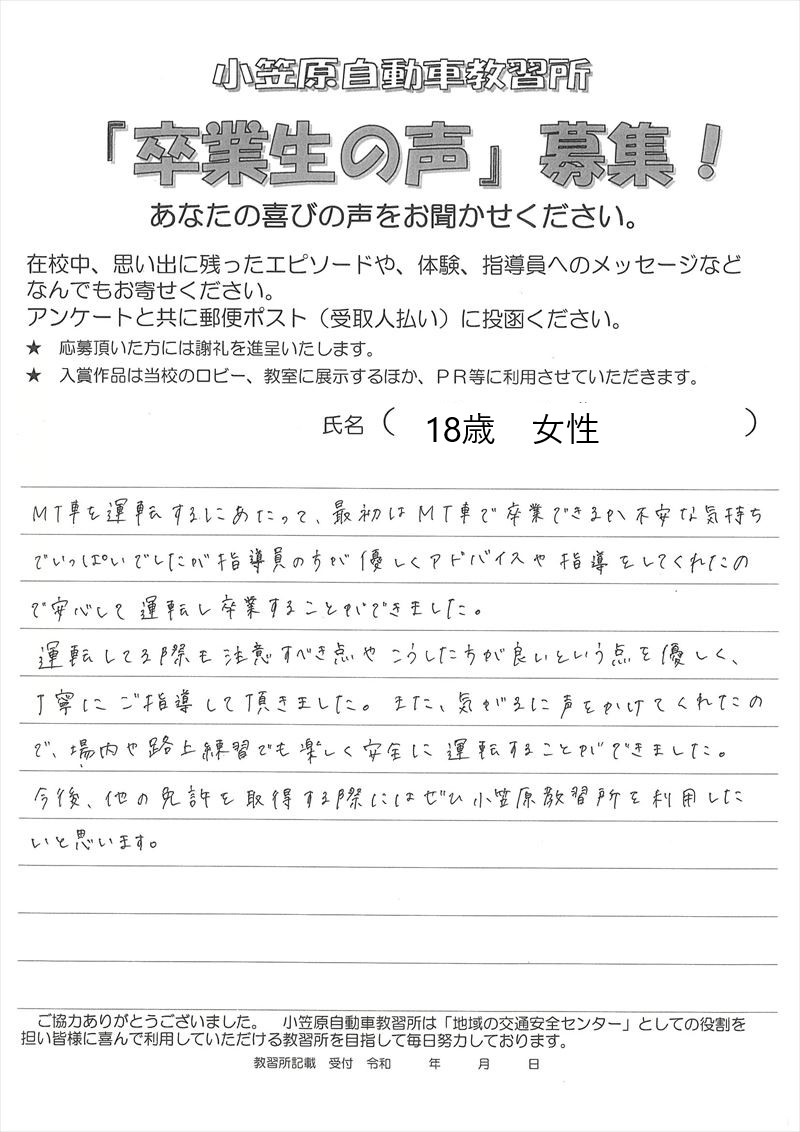 小笠原自動車教習所
『卒業生の声』募集！
あなたの喜びの声をお聞かせください。
在校中、思い出に残ったエピソードや、体験、指導員へのメッセージなど
なんでもお寄せください。
アンケートと共に郵便ポスト（受取人払い）に投函ください。
★　応募頂いた方には謝礼を進呈いたします。
★　入賞作品は当校のロビー、教室に展示するほか、ＰＲ等に利用させていただきます。
氏名（　18歳　女性　）
MT車を運転するにあたって、最初はMT車で卒業できるか不安な気持ち
でいっぱいでしたが指導員の方が優しくアドバイスや指導をしてくれたの
で安心して運転し卒業することができました。
運転してる際も注意すべき点やこうした方が良いという点を優しく、
丁寧にご指導して頂きました。また、気がるに声をかけてくれたの
で、場内や路上練習でも楽しく安全に運転することができました。
今後、他の免許を取得する際にはぜひ小笠原教習所を利用した
いと思います。
ご協力ありがとうございました。　小笠原自動車教習所は「地域の交通安全センター」としての役割を
担い皆様に喜んで利用していただける教習所を目指して毎日努力しております。
教習所記載　受付　令和　　年　　月　　日